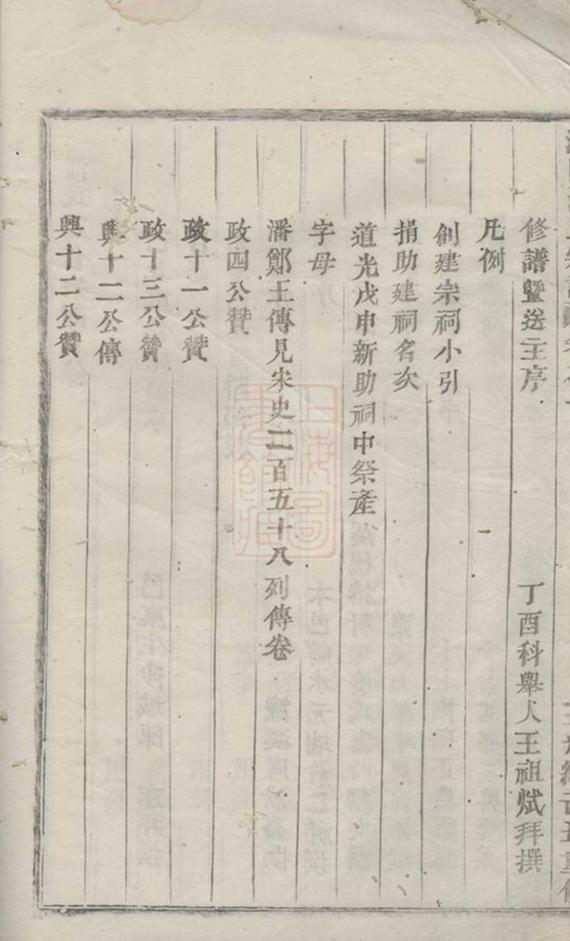 修譜暨送主序　丁酉科舉人王祖拜撰
凡例
創建宗祠小引
捐助建祠名次
道光戊申新助祠中祭產
字母
潘鄭王傳見宋史二百五十八列傳卷
政四公贊
政十一公贊
政十三公贊
興十二公傳
興十二公贊
上海圖書館藏